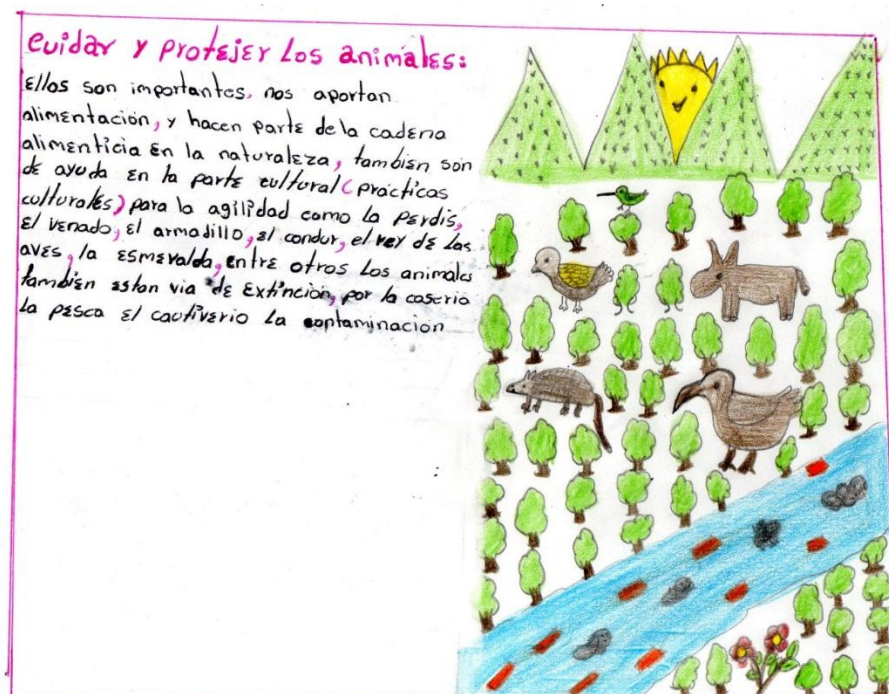 Cuidar y protejer Los animales:
Ellos son importantes, nos aportan
alimentación, y hacen parte de la cadena
alimenticia en la naturaleza, tambien son
de ayuda en la parte cultural (practicas
culturales) para la agilidad como la perdis,
el venado, el armadillo, el condur, el rey de las
aves, la esmeralda, entre otros los animales
tambien estan via de Extinción, por la caseria
La pesca el cautiverio La contaminacion